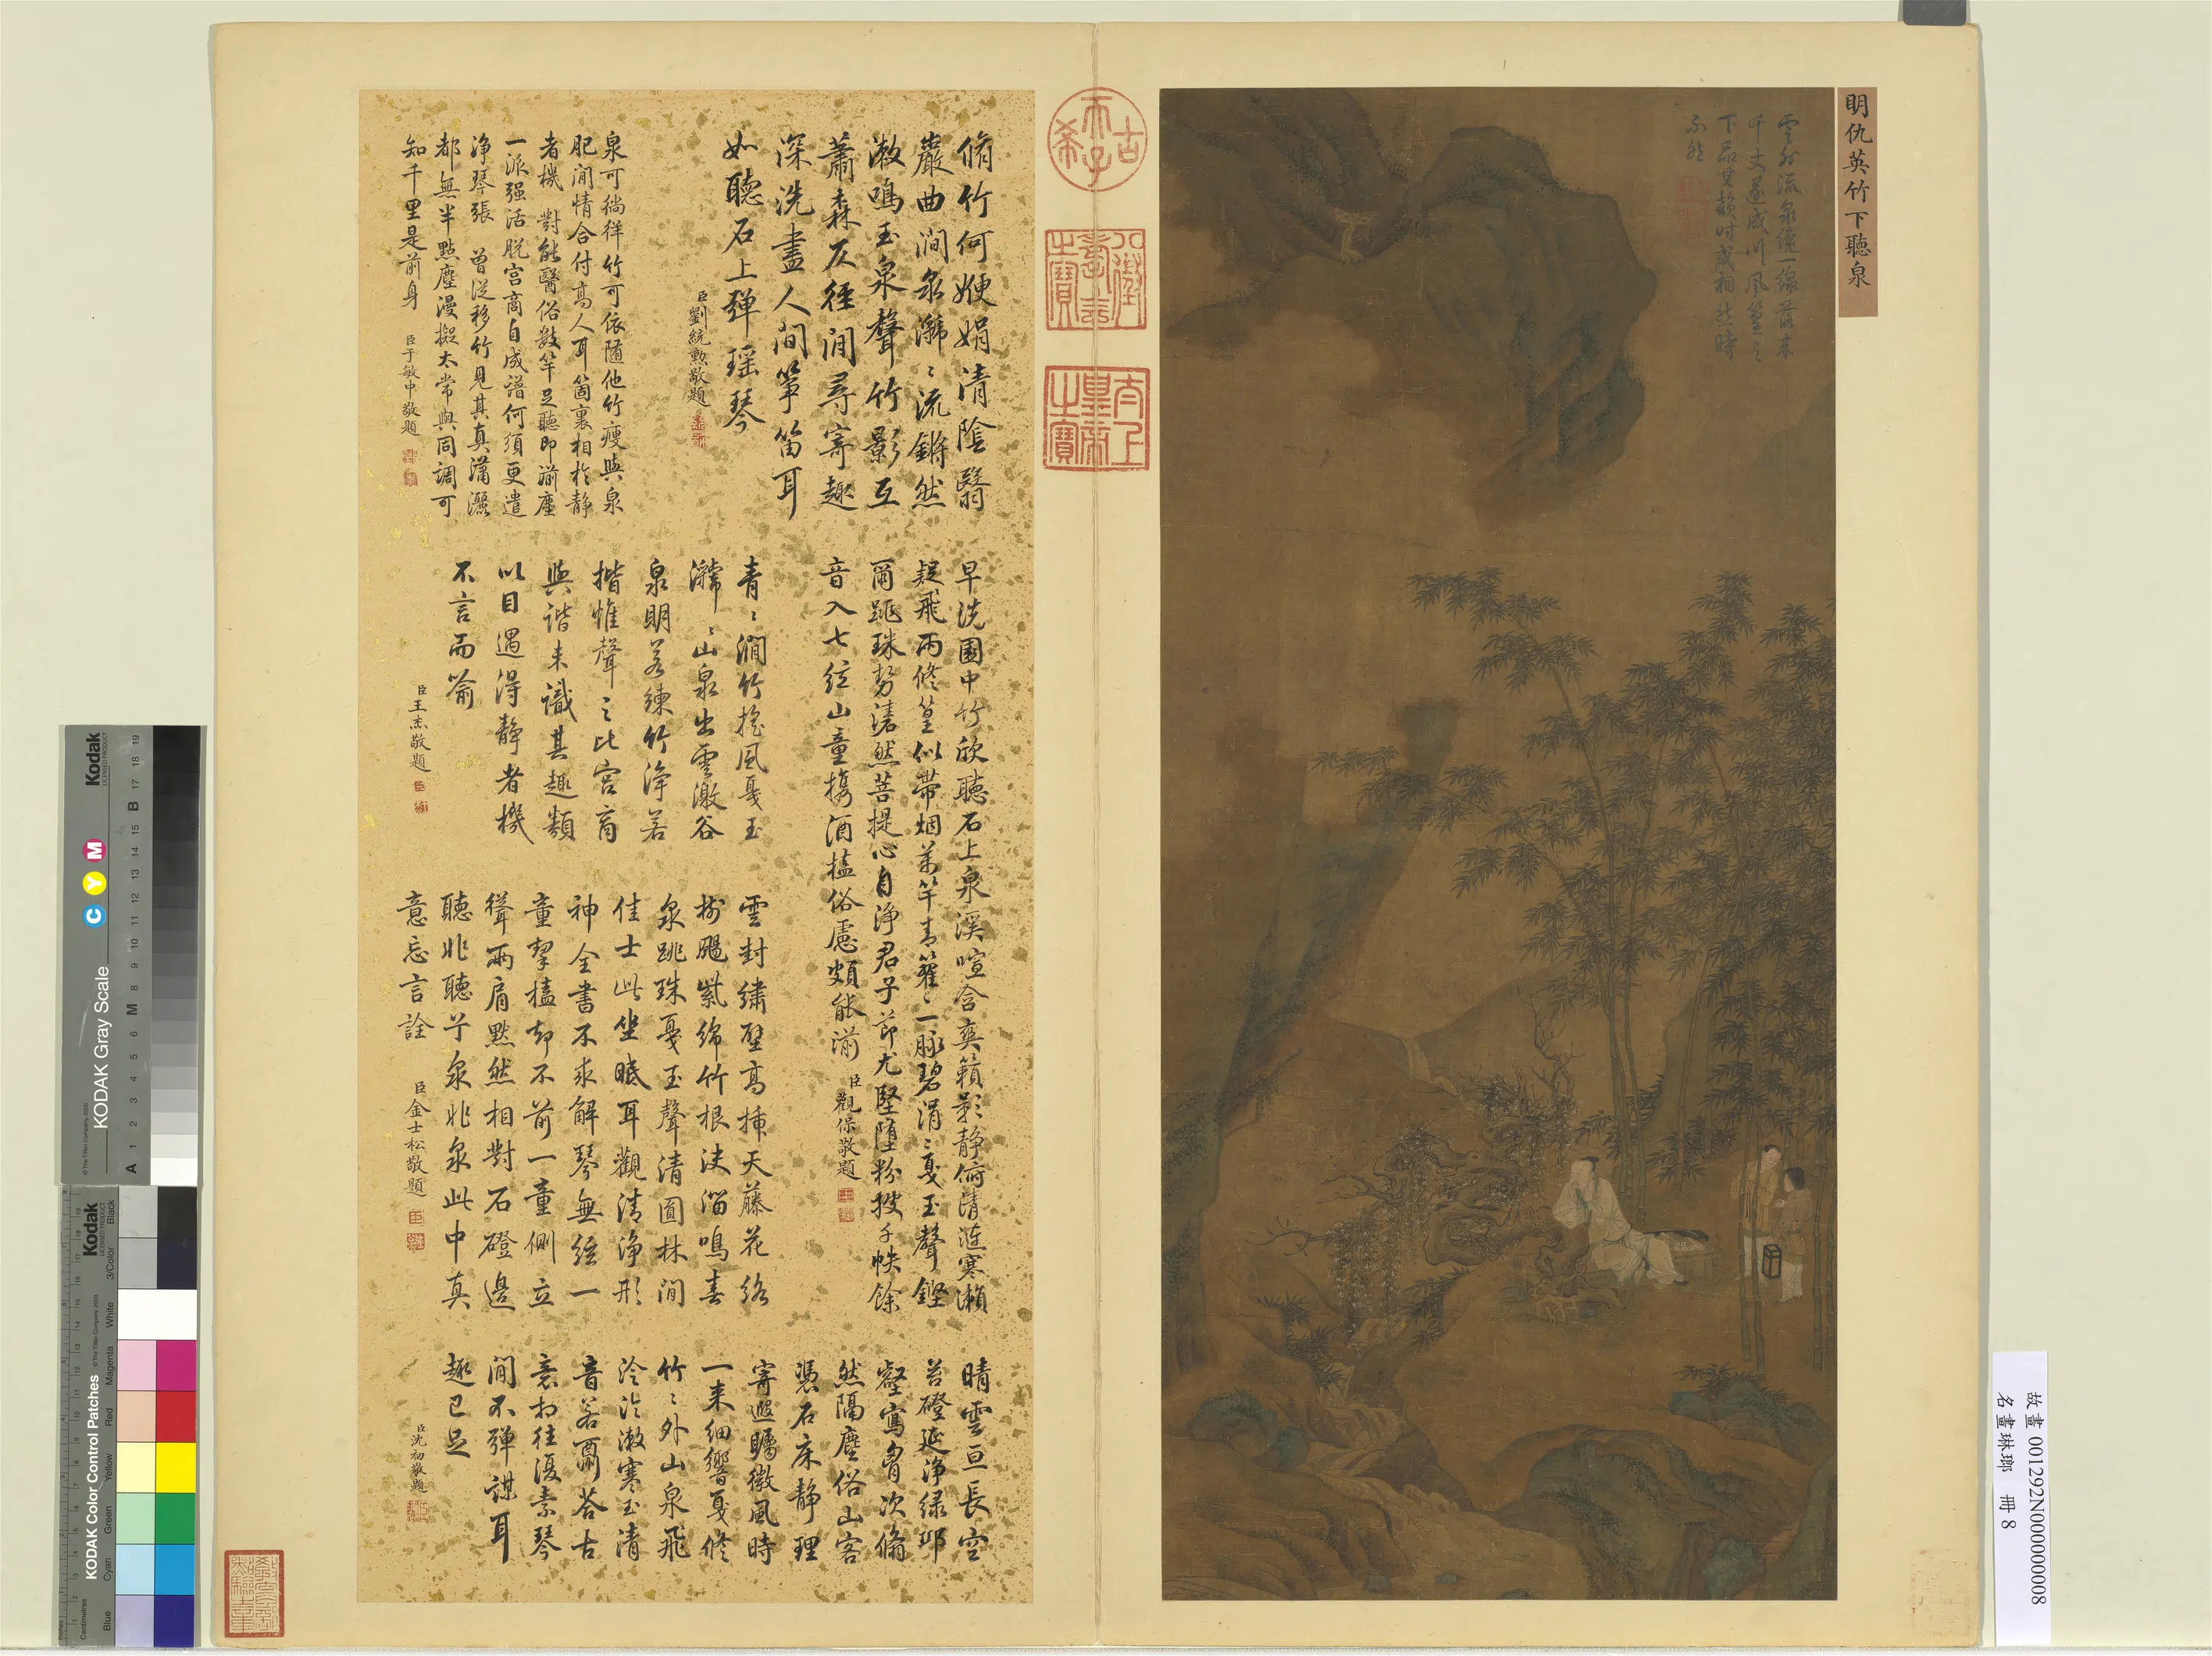 明仇英竹下聽泉
雲外流泉繞一線落來
千丈遂成川風篁之
下品其韻時或相然時
不然
古
希
天
子
八徵
耄念
之寶
太上
皇帝
之寶
脩竹何㛹娟清陰翳
巖曲澗泉㶁〻流鏘然
漱鳴玉泉聲竹影互
蕭森仄徑閒尋寄趣
深洗盡人間箏笛耳
如聽石上彈瑶琴
臣劉統勲敬題
泉可徜徉竹可依随他竹瘦與泉
肥閒情合付高人耳箇裏相於静
者機 對能醫俗數竿足聽即湔塵
一派强活脱宫商自成譜何須更遣
净琴張 曾従移竹見其真瀟灑
都無半點塵漫擬太常與同調可
知千里是前身
臣于敏中敬題
早洗園中竹欣聽石上泉溪喧含爽籟影静俯清漣寒瀨
疑飛雨修篁似帶烟萬竿青籊〻一脉碧涓〻戛玉聲鏗
爾跳珠勢濜然菩提心自净君子節尤堅堕粉披千帙餘
音入七絃山童携酒榼俗慮頗能湔
臣觀保敬題
青〻澗竹摇風戛玉
㶁〻山泉出雲激谷
泉明若練竹淨若
揩惟聲之比宫商
與諧未識其趣類
以目遇得静者機
不言而喻
臣王杰敬題
雲封繡壁高插天藤花絡
樹颺紫綿竹根決溜鳴春
泉跳珠戛玉聲清圓林間
佳士此坐眠耳觀清淨形
神全書不求解琴無絃一
童挈榼却不前一童側立
聳兩肩默然相對石磴邊
聽非聽兮泉非泉此中真
意忘言詮
臣金士松敬題
晴雲亘長空
苔磴延淨緑耶
壑寫胷次翛
然隔塵俗山客
凴石床静理
寄遐矚微風時
一来細響戛修
竹〻外山泉飛
泠泠漱寒玉清
音若爾荅古
意相往復素琴
閒不彈謀耳
趣已足
臣沈初敬題
故畫 001292N000000008
名畫琳瑯 冊 8
Kodak
LICENSED PRODUCT
KODAK Gray Scale
C Y M
© The Tiffen Company, 2000
A 1 2 3 4 5 6 M 8 9 10 11 12 13 14 15 B 17 18 19
Kodak
LICENSED PRODUCT
KODAK Color Control Patches
© The Tiffen Company, 2000
Centimetres
Blue Cyan Green Yellow Red Magenta White 3/Color Black